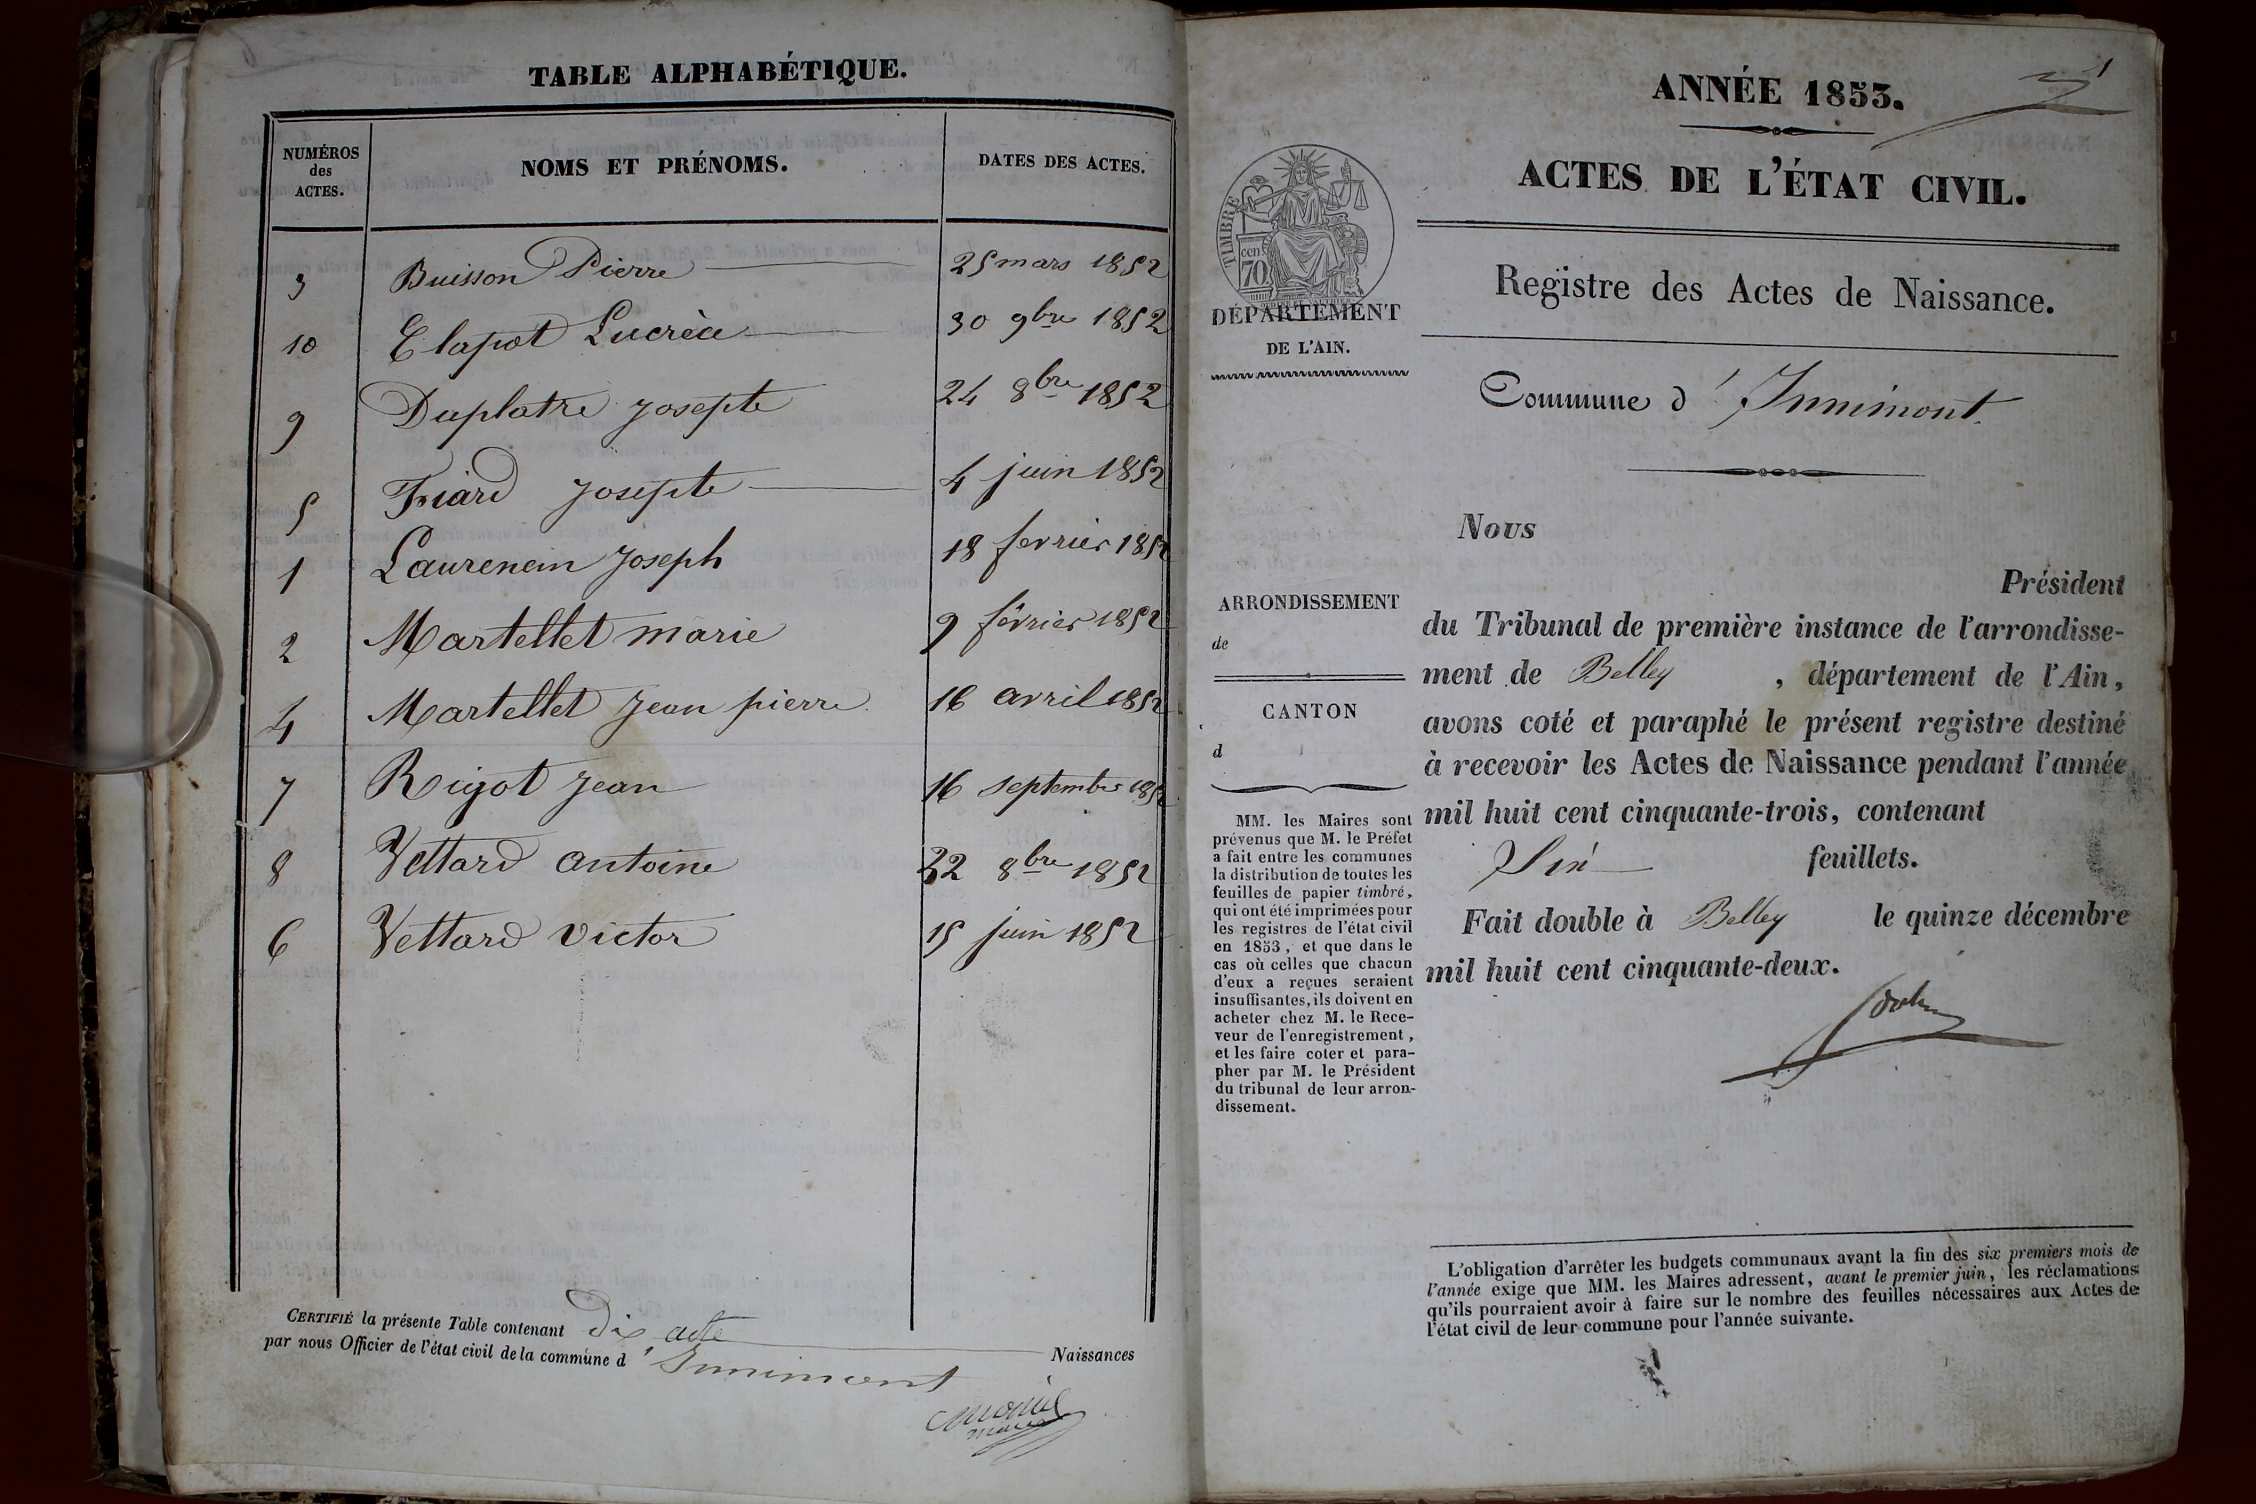 TABLE ALPHABÉTIQUE.
NUMÉROS
des
ACTES.
NOMS ET PRÉNOMS.
DATES DES ACTES.
3 Buisson Pierre 25 mars 1852
10 Clapot Lucrèce 30 9bre 1852
9 Duplatre Josepte 24 8bre 1852
5 Friard Josepte 4 juin 1852
1 Laurencin Joseph 18 fevrier 1852
2 Martellet marie 9 février 1852
4 Martellet Jean pierre 16 avril 1852
7 Rigot Jean 16 septembre 1852
8 Vettard antoine 22 8bre 1852
6 Vettard victor 15 juin 1852
CERTIFIÉ la présente Table contenant dix acte
Naissances
par nous Officier de l'état civil de la commune d'Innimont
maire
1
ANNÉE 1853.
ACTES DE L'ÉTAT CIVIL.
Registre des Actes de Naissance.
TIMBRE
70 cen.
DÉPARTEMENT
DE L'AIN.
Commune d'Innimont.
Nous
Président
du Tribunal de première instance de l'arrondisse-
ment de Belley , département de l'Ain,
avons coté et paraphé le présent registre destiné
à recevoir les Actes de Naissance pendant l'année
mil huit cent cinquante-trois, contenant
Six feuillets.
Fait double à Belley le quinze décembre
mil huit cent cinquante-deux.
ARRONDISSEMENT
de
CANTON
d
MM. les Maires sont
prévenus que M. le Préfet
a fait entre les communes
la distribution de toutes les
feuilles de papier timbré,
qui ont été imprimées pour
les registres de l'état civil
en 1853, et que dans le
cas où celles que chacun
d'eux a reçues seraient
insuffisantes, ils doivent en
acheter chez M. le Rece-
veur de l'enregistrement,
et les faire coter et para-
pher par M. le Président
du tribunal de leur arron-
dissement.
L'obligation d'arrêter les budgets communaux avant la fin des six premiers mois de
l'année exige que MM. les Maires adressent, avant le premier juin, les réclamations
qu'ils pourraient avoir à faire sur le nombre des feuilles nécessaires aux Actes de
l'état civil de leur commune pour l'année suivante.